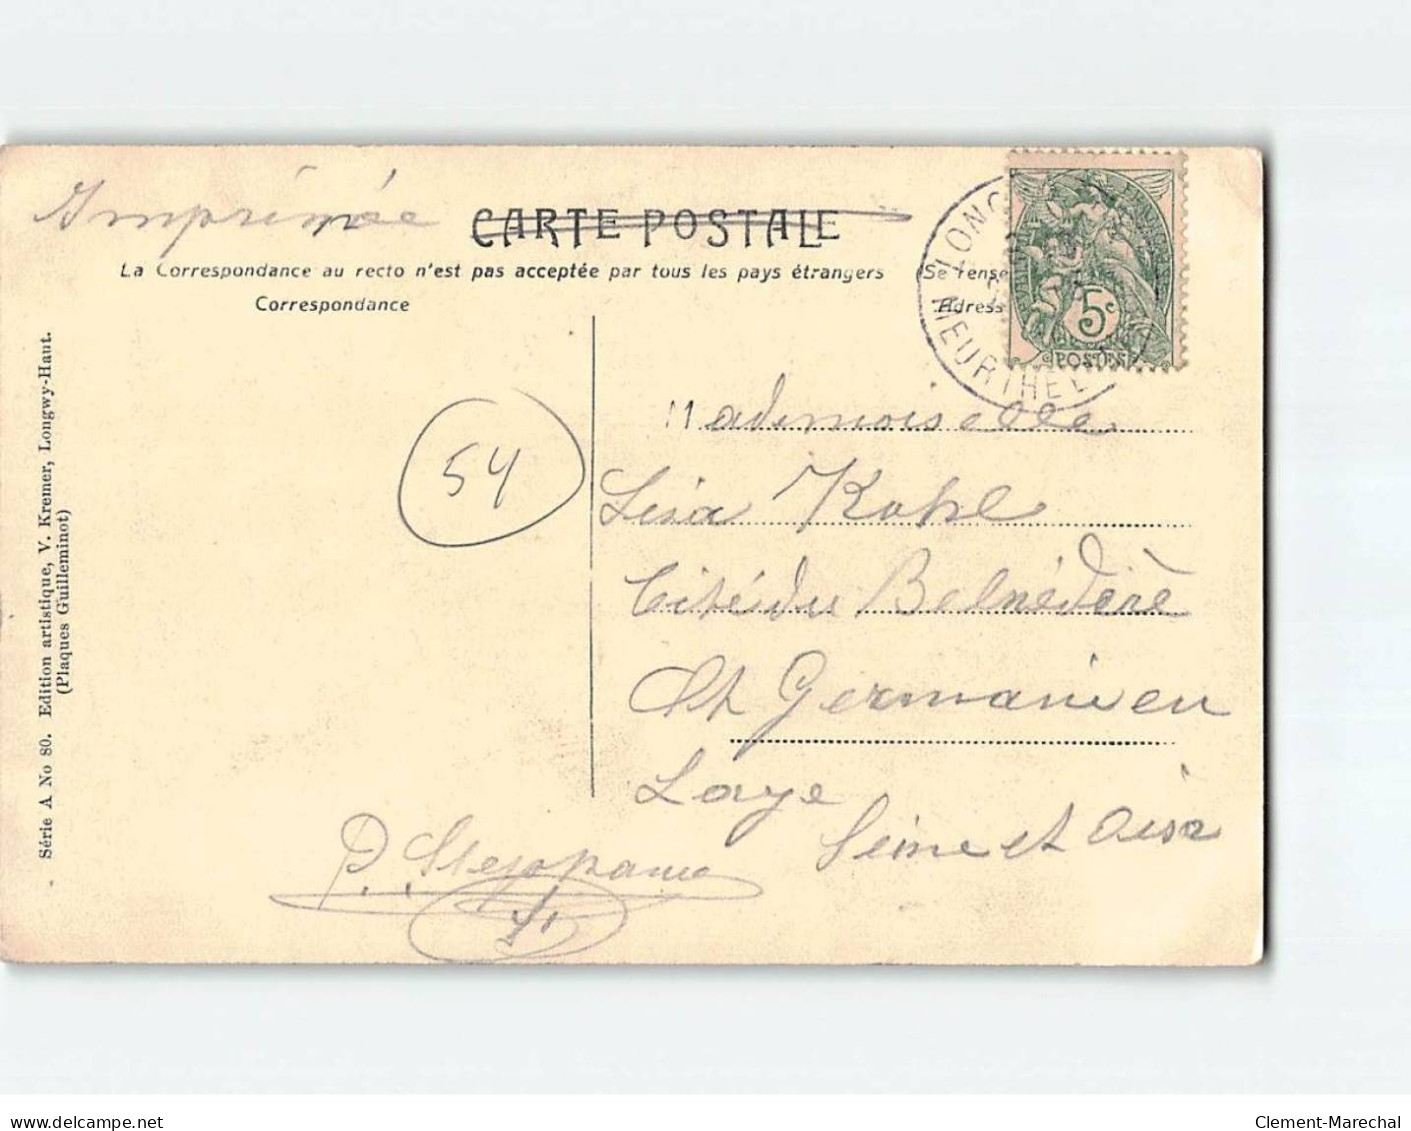 Imprimée
CARTE POSTALE
La Correspondance au recto n'est pas acceptée par tous les pays étrangers
Se rense
Correspondance
Adress
LONG
MEURTHE
5c
POSTES
Mademoiselle
54
Lisa Kohl
Cité du Belnédère
St Germain en
Laye
Seine et Oise
P. Steppanu
Série A No 80. Edition artistique, V. Kremer, Longwy-Haut.
(Plaques Guilleminot)
www.delcampe.net
Clement-Marechal